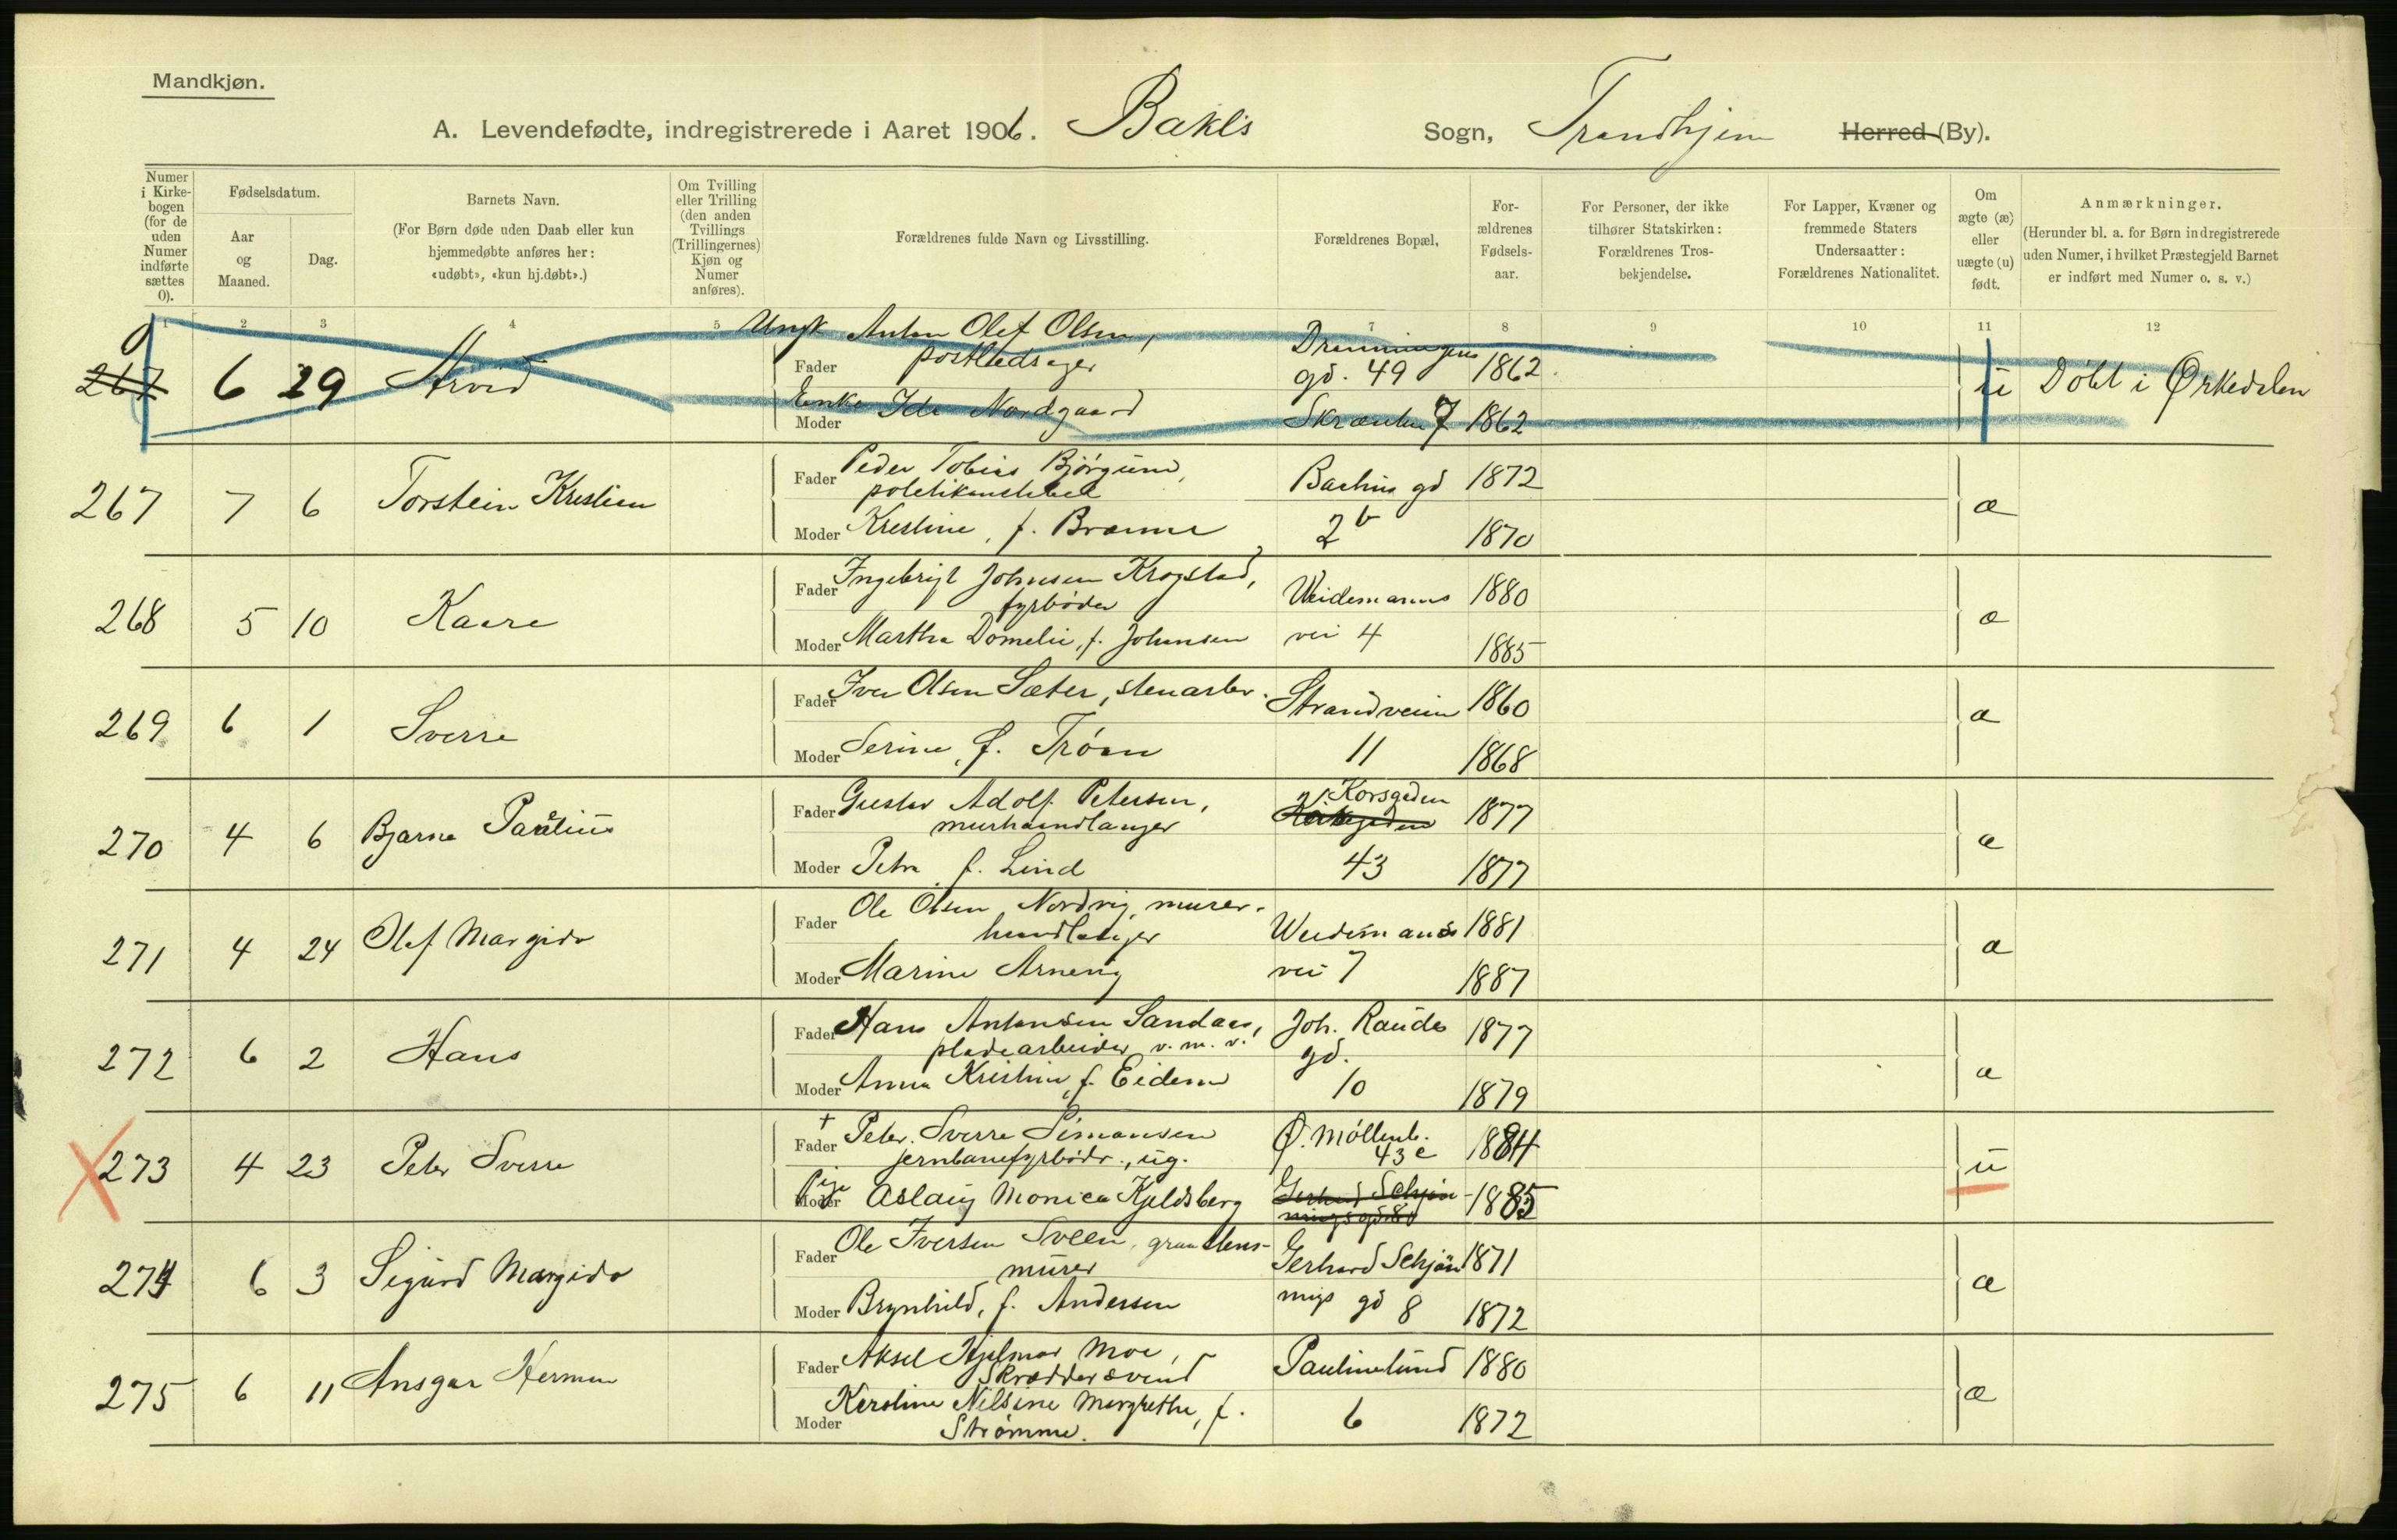 Mandkjøn.
A. Levendefødte, indregistrerede i Aaret 1906. Bakls Sogn, Trondhjem Herred (By).
Numer i Kirkebogen (for de uden Numer indførte sættes 0).
Fødselsdatum.
Aar og Maaned.
Dag.
Barnets Navn.
(For Børn døde uden Daab eller kun hjemmedøbte anføres her: «udøbt», «kun hj.døbt».)
Om Tvilling eller Trilling (den anden Tvillings (Trillingernes) Kjøn og Numer anføres).
Forældrenes fulde Navn og Livsstilling.
Forældrenes Bopæl,
Forældrenes Fødselsaar.
For Personer, der ikke tilhører Statskirken: Forældrenes Trosbekjendelse.
For Lapper, Kvæner og fremmede Staters Undersaatter: Forældrenes Nationalitet.
Om ægte (æ) eller uægte (u) født.
Anmærkninger.
(Herunder bl. a. for Børn indregistrerede uden Numer, i hvilket Præstegjeld Barnet er indført med Numer o. s. v.)
1 2 3 4 5 7 8 9 10 11 12
0
267 6 29 Arvid
Ungk Anton Olef Olsen,
Fader postledsager Dronningens gd. 49 1862
Enke Ida Nordgaard
Moder Skrænten 7 1862
u Døbt i Ørkedalen
267 7 6 Torstein Kristian
Fader Peder Tobias Bjørgum, Bachus gd 1872
politikonstabel
Moder Kristine, f. Brænne 2b 1870
æ
268 5 10 Kaare
Fader Ingebrigt Johnsen Krogstad, Weidemanns 1880
fyrbøder
Moder Martha Domelie, f. Johansen vei 4 1885
æ
269 6 1 Sverre
Fader Iver Olsen Sæter, stenarbr. Strandveien 1860
Moder Serine, f. Trøen 11 1868
æ
270 4 6 Bjarne Paulius
Fader Gustav Adolf Petersen, Korsgaden 1877
murhaandlanger
Moder Petra f. Lind 43 1877
æ
271 4 24 Olef Margido
Fader Ole Olsen Nordvig, murer- Weidemanns 1881
handlanger
Moder Marine Arnevig vei 7 1887
æ
272 6 2 Hans
Fader Hans Antonsen Sandaas, Joh. Rauds 1877
pladearbeider v. m. v. gd.
Moder Anna Kristine, f. Eidem 10 1879
æ
X 273 4 23 Peter Sverre
+
Fader Peter Sverre Simonsen Ø. Møllenb. 1884
jernbanefyrbødr., ug. 43c
Pige
Moder Aslaug Monica Kjeldsberg Gerhard Schjønnings gd 80 1885
u
274 6 3 Sigurd Margido
Fader Ole Iversen Sveen, graastens- Gerhard Schjøn 1871
murer
Moder Brynhild, f. Andersen nigs gd 8 1872
æ
275 6 11 Ansgar Herman
Fader Aksel Hjalmar Moe, Paulinelund 1880
Skræddersvend
Moder Kerstine Nilsine Margrethe, f. 6 1872
Strømme.
æ